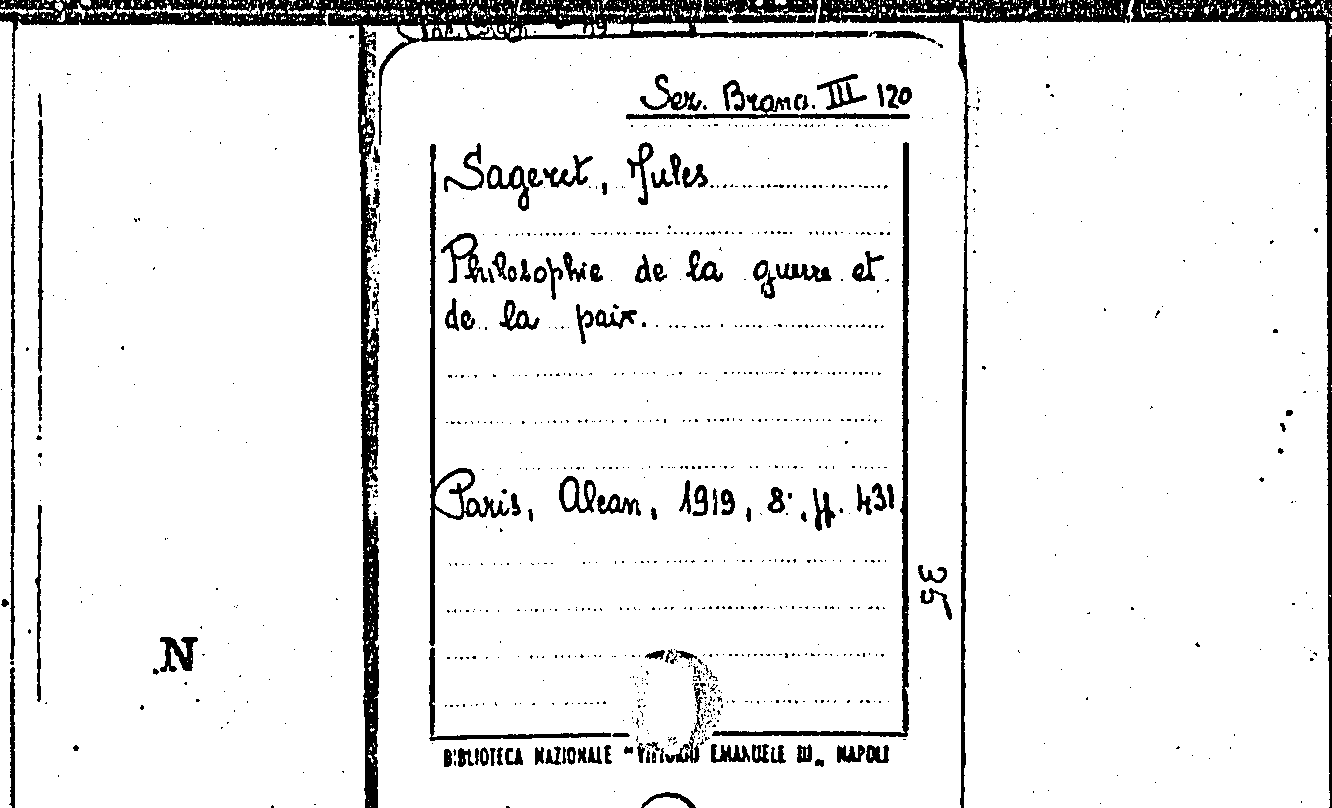 Sez. Branc. III 120
Sageret, Jules
Philosophie de la guerre et
de la paix.
Paris, Alcan, 1919, 8°, pp. 431
35
N
BIBLIOTECA NAZIONALE "VITTORIO EMANUELE III„ NAPOLI